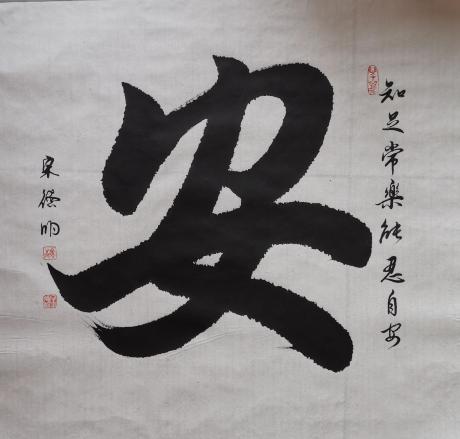 知足常樂能忍自安
安
宋德明